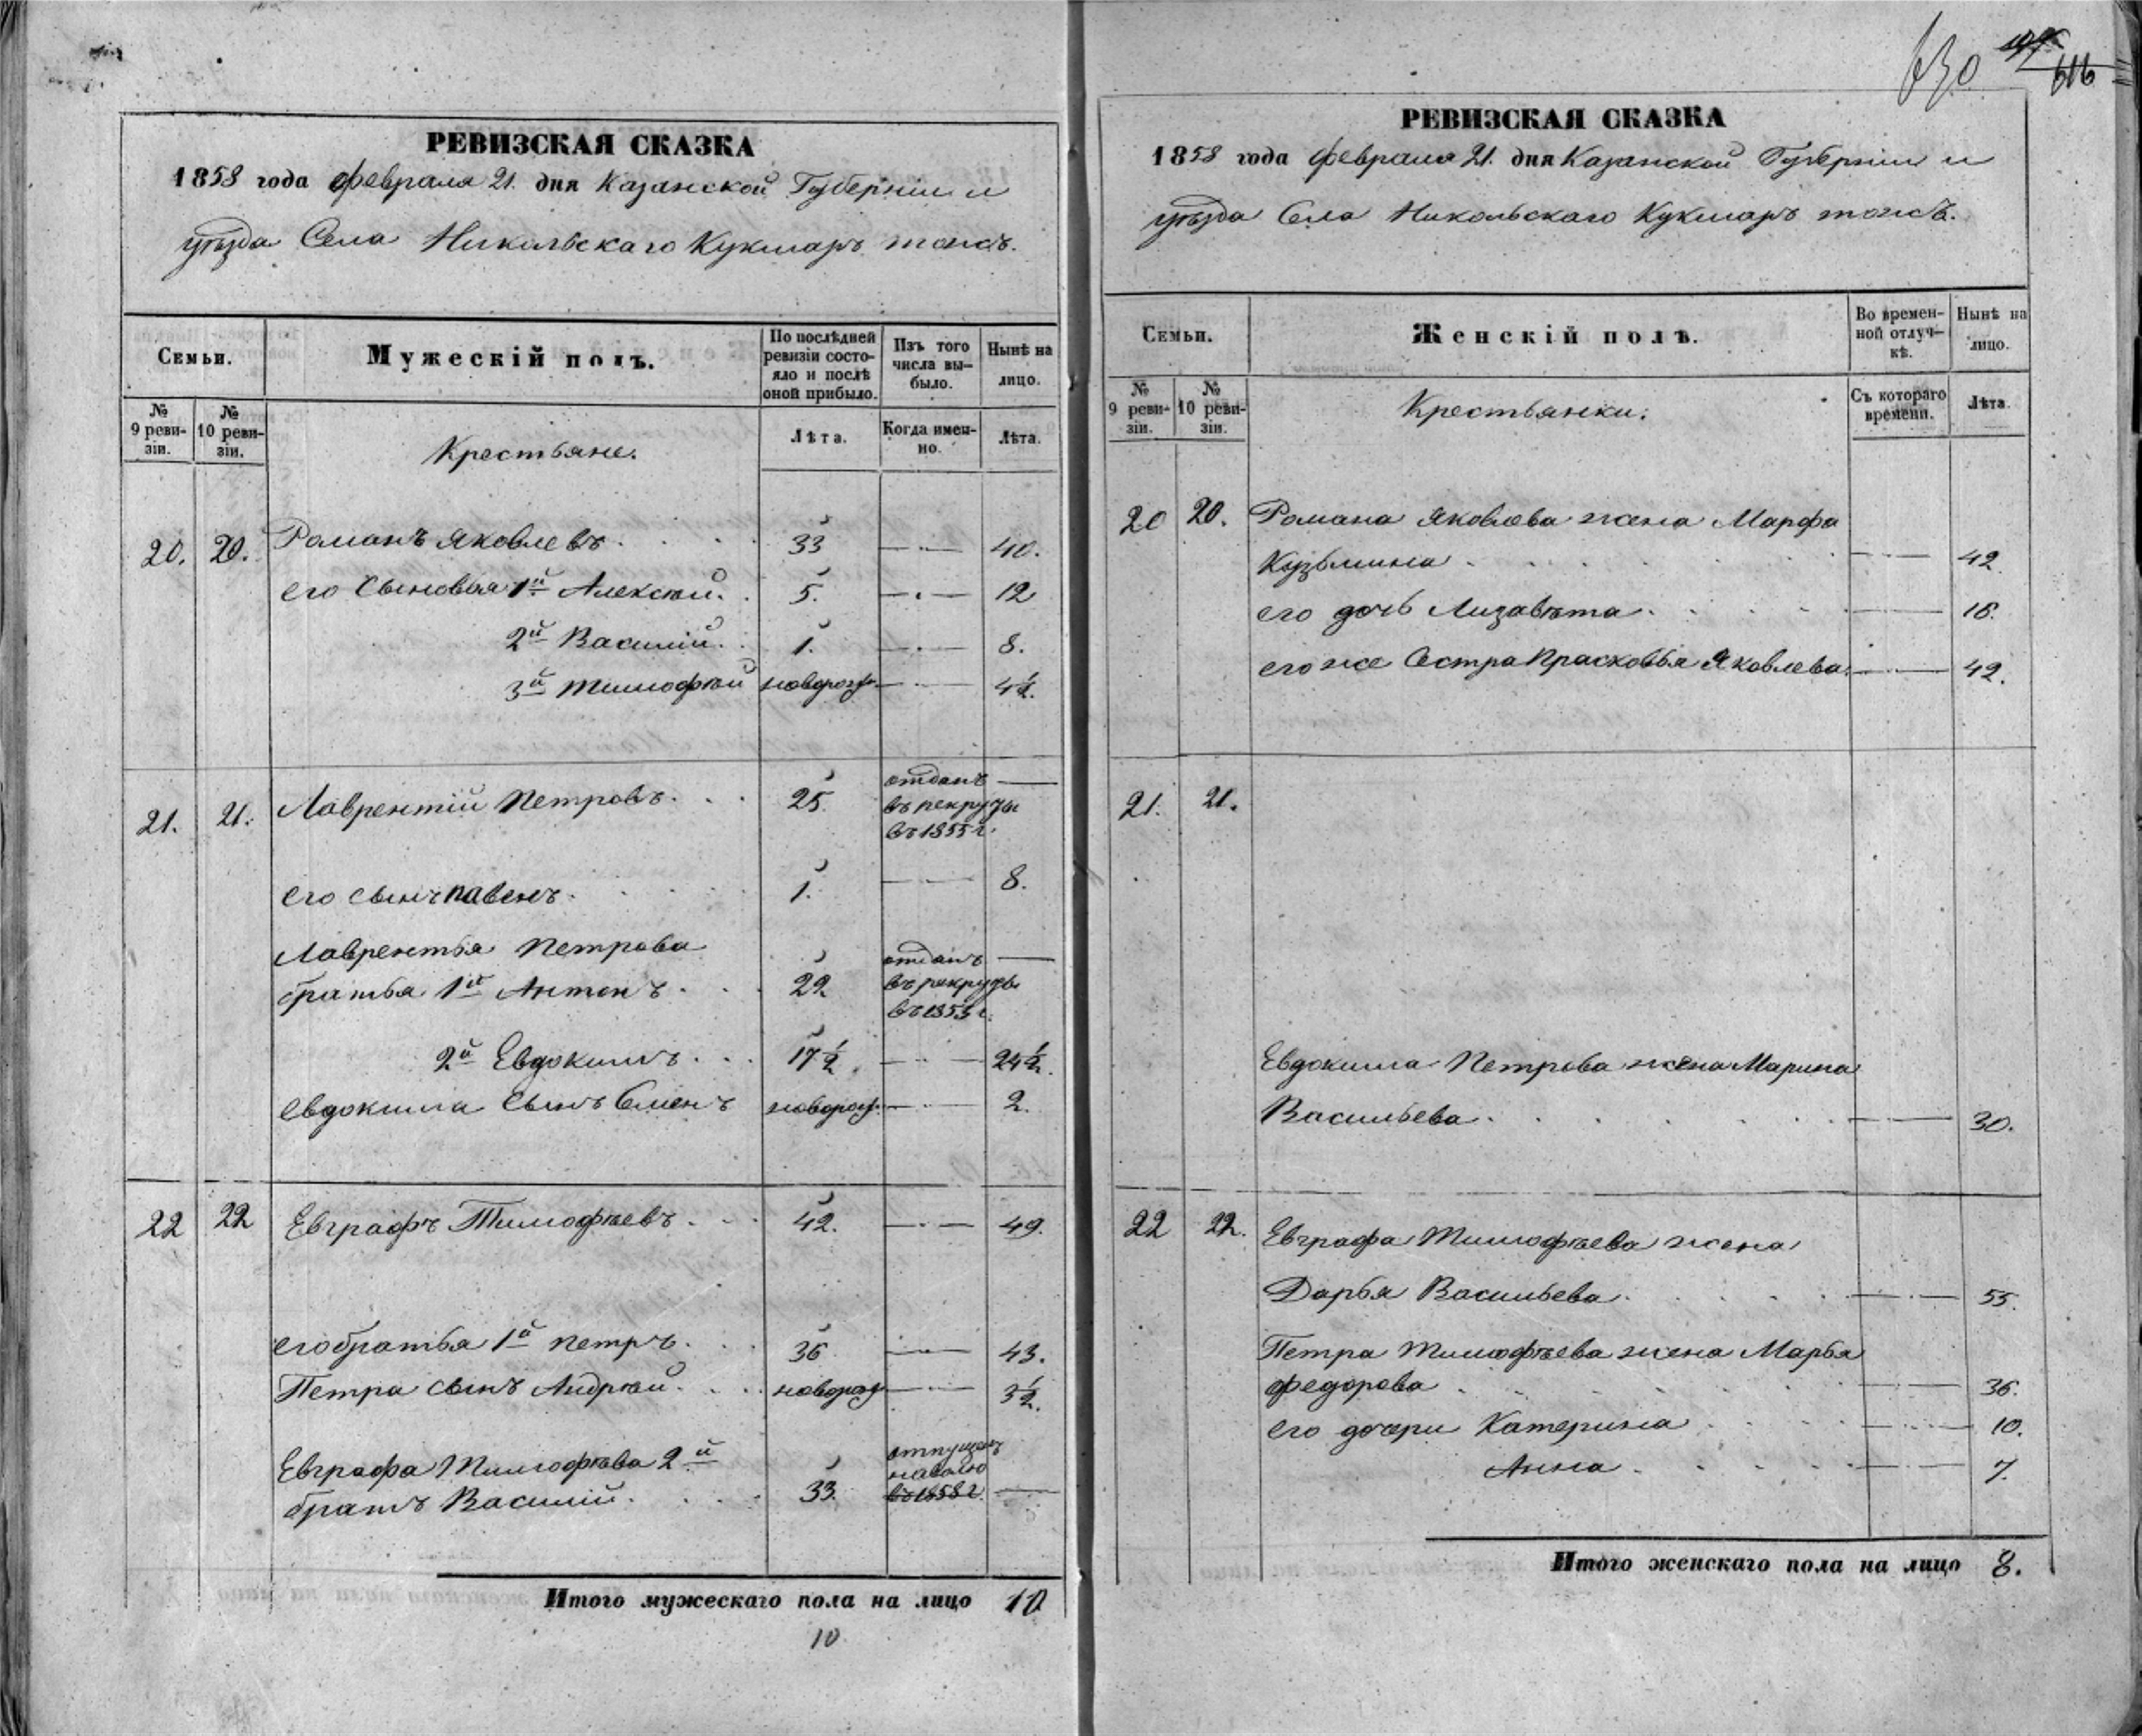 РЕВИЗСКАЯ СКАЗКА
1858 года февраля 21. дня Казанской Губерніи и
уѣзда Села Никольскаго Кукмаръ тожъ.
Семьи.
Мужескій полъ.
По послѣдней ревизіи состо-
яло и послѣ оной прибыло.
Изъ того числа вы-
было.
Нынѣ на лицо.
№ 9 реви-
зіи.
№ 10 реви-
зіи.
Крестьяне.
Лѣта.
Когда имен-
но.
Лѣта.
20. 20. Романъ Яковлевъ. 33 40.
его сыновья 1й Алексѣй. 5. 12
2й Василій. 1. 8.
3й Тимофѣй новорож 4½.
21. 21. Лаврентій Петровъ. 25. отданъ
въ рекруты
въ 1855 г.
его сынъ Павелъ. 1. 8.
Лаврентья Петрова
братья 1й Антонъ. 22 отданъ
въ рекруты
въ 1853 г.
2й Евдокимъ. 17½. 24½.
Евдокима сынъ Семенъ новорож. 2.
22 22 Евграфъ Тимофѣевъ. 42. 49.
его братья 1й Петръ. 36 43.
Петра сынъ Андрѣй. новорож 3½.
Евграфа Тимофѣева 2й
братъ Василій. 33. отпущенъ
на волю
въ 1858 г.
Итого мужескаго пола на лицо 10
10
630
616
РЕВИЗСКАЯ СКАЗКА
1858 года февраля 21. дня Казанской Губерніи и
уѣзда Села Никольскаго Кукмаръ тожъ.
Семьи.
Женскій полъ.
Во времен-
ной отлуч-
кѣ.
Нынѣ на лицо.
№ 9 реви-
зіи.
№ 10 реви-
зіи.
Крестьянки.
Съ котораго времени.
Лѣта.
20 20. Романа Яковлева жена Марфа
Кузьмина 42
его дочь Лизавѣта. 16.
его же сестра Прасковья Яковлева. 42.
21. 21.
Евдокима Петрова жена Марина
Васильева. 30.
22 22. Евграфа Тимофѣева жена
Дарья Васильева. 55.
Петра Тимофѣева жена Марья
Федорова 36.
его дочери Катерина 10.
Анна. 7.
Итого женскаго пола на лицо 8.